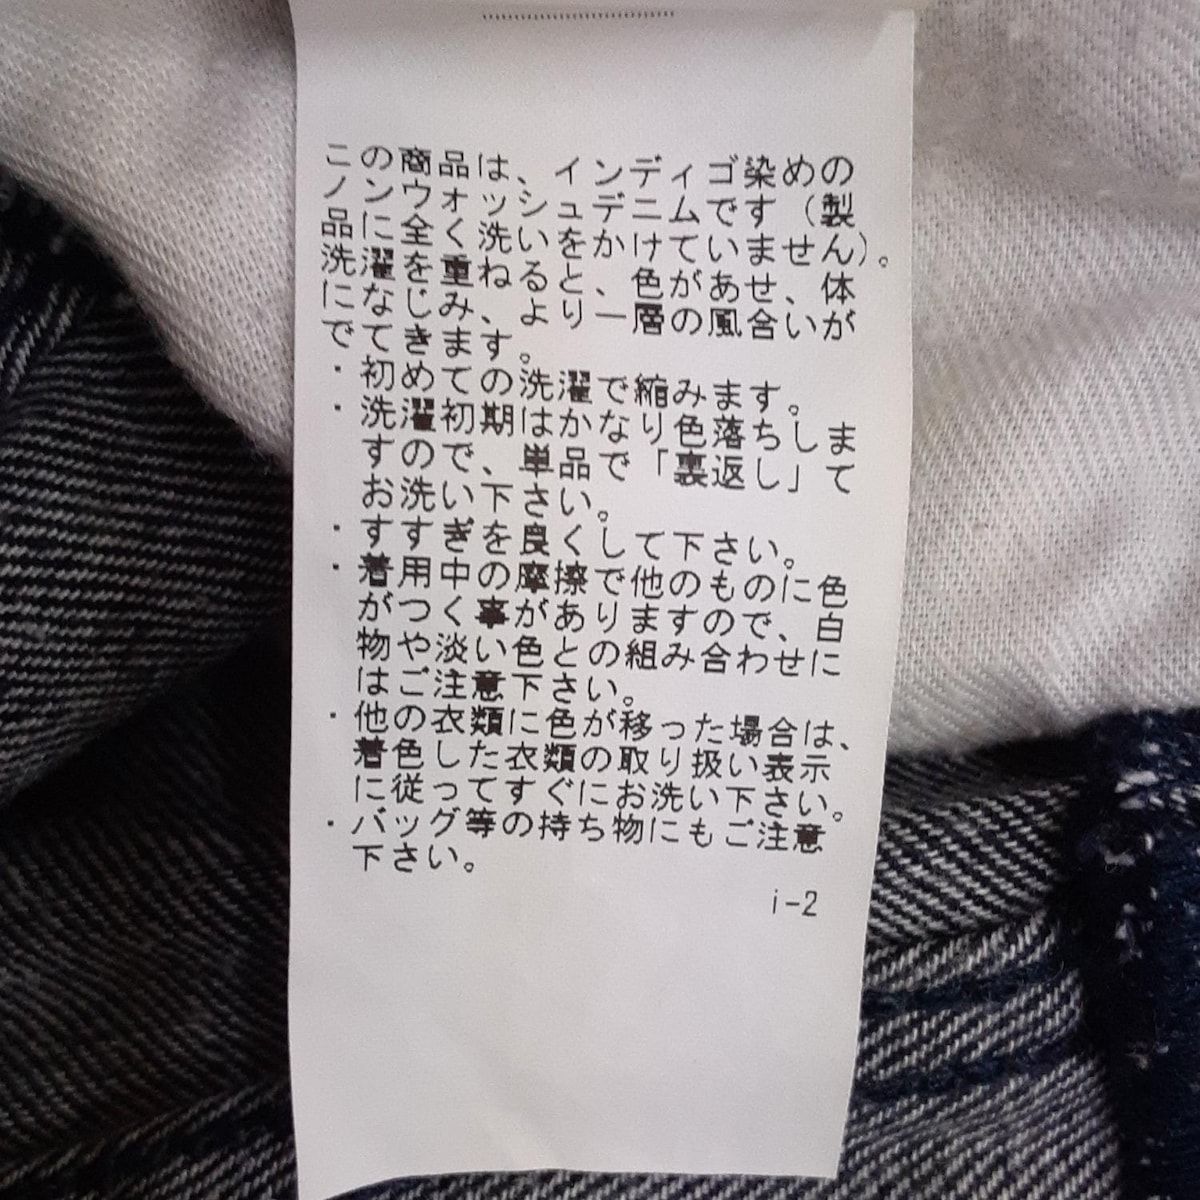 この商品は、インディゴ染めの
ノンウォッシュデニムです（製
品に全く洗いをかけていません）。
洗濯を重ねると、色があせ、体
になじみ、より一層の風合いが
でてきます。
・初めての洗濯で縮みます。
・洗濯初期はかなり色落ちしま
すので、単品で「裏返し」て
お洗い下さい。
・すすぎを良くして下さい。
・着用中の摩擦で他のものに色
がつく事がありますので、白
物や淡い色との組み合わせに
はご注意下さい。
・他の衣類に色が移った場合は、
着色した衣類の取り扱い表示
に従ってすぐにお洗い下さい。
・バッグ等の持ち物にもご注意
下さい。
i-2